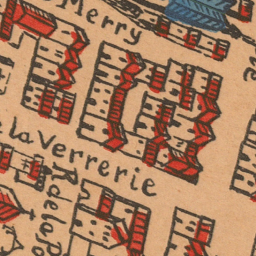 Merry
la Verrerie
R de la Po